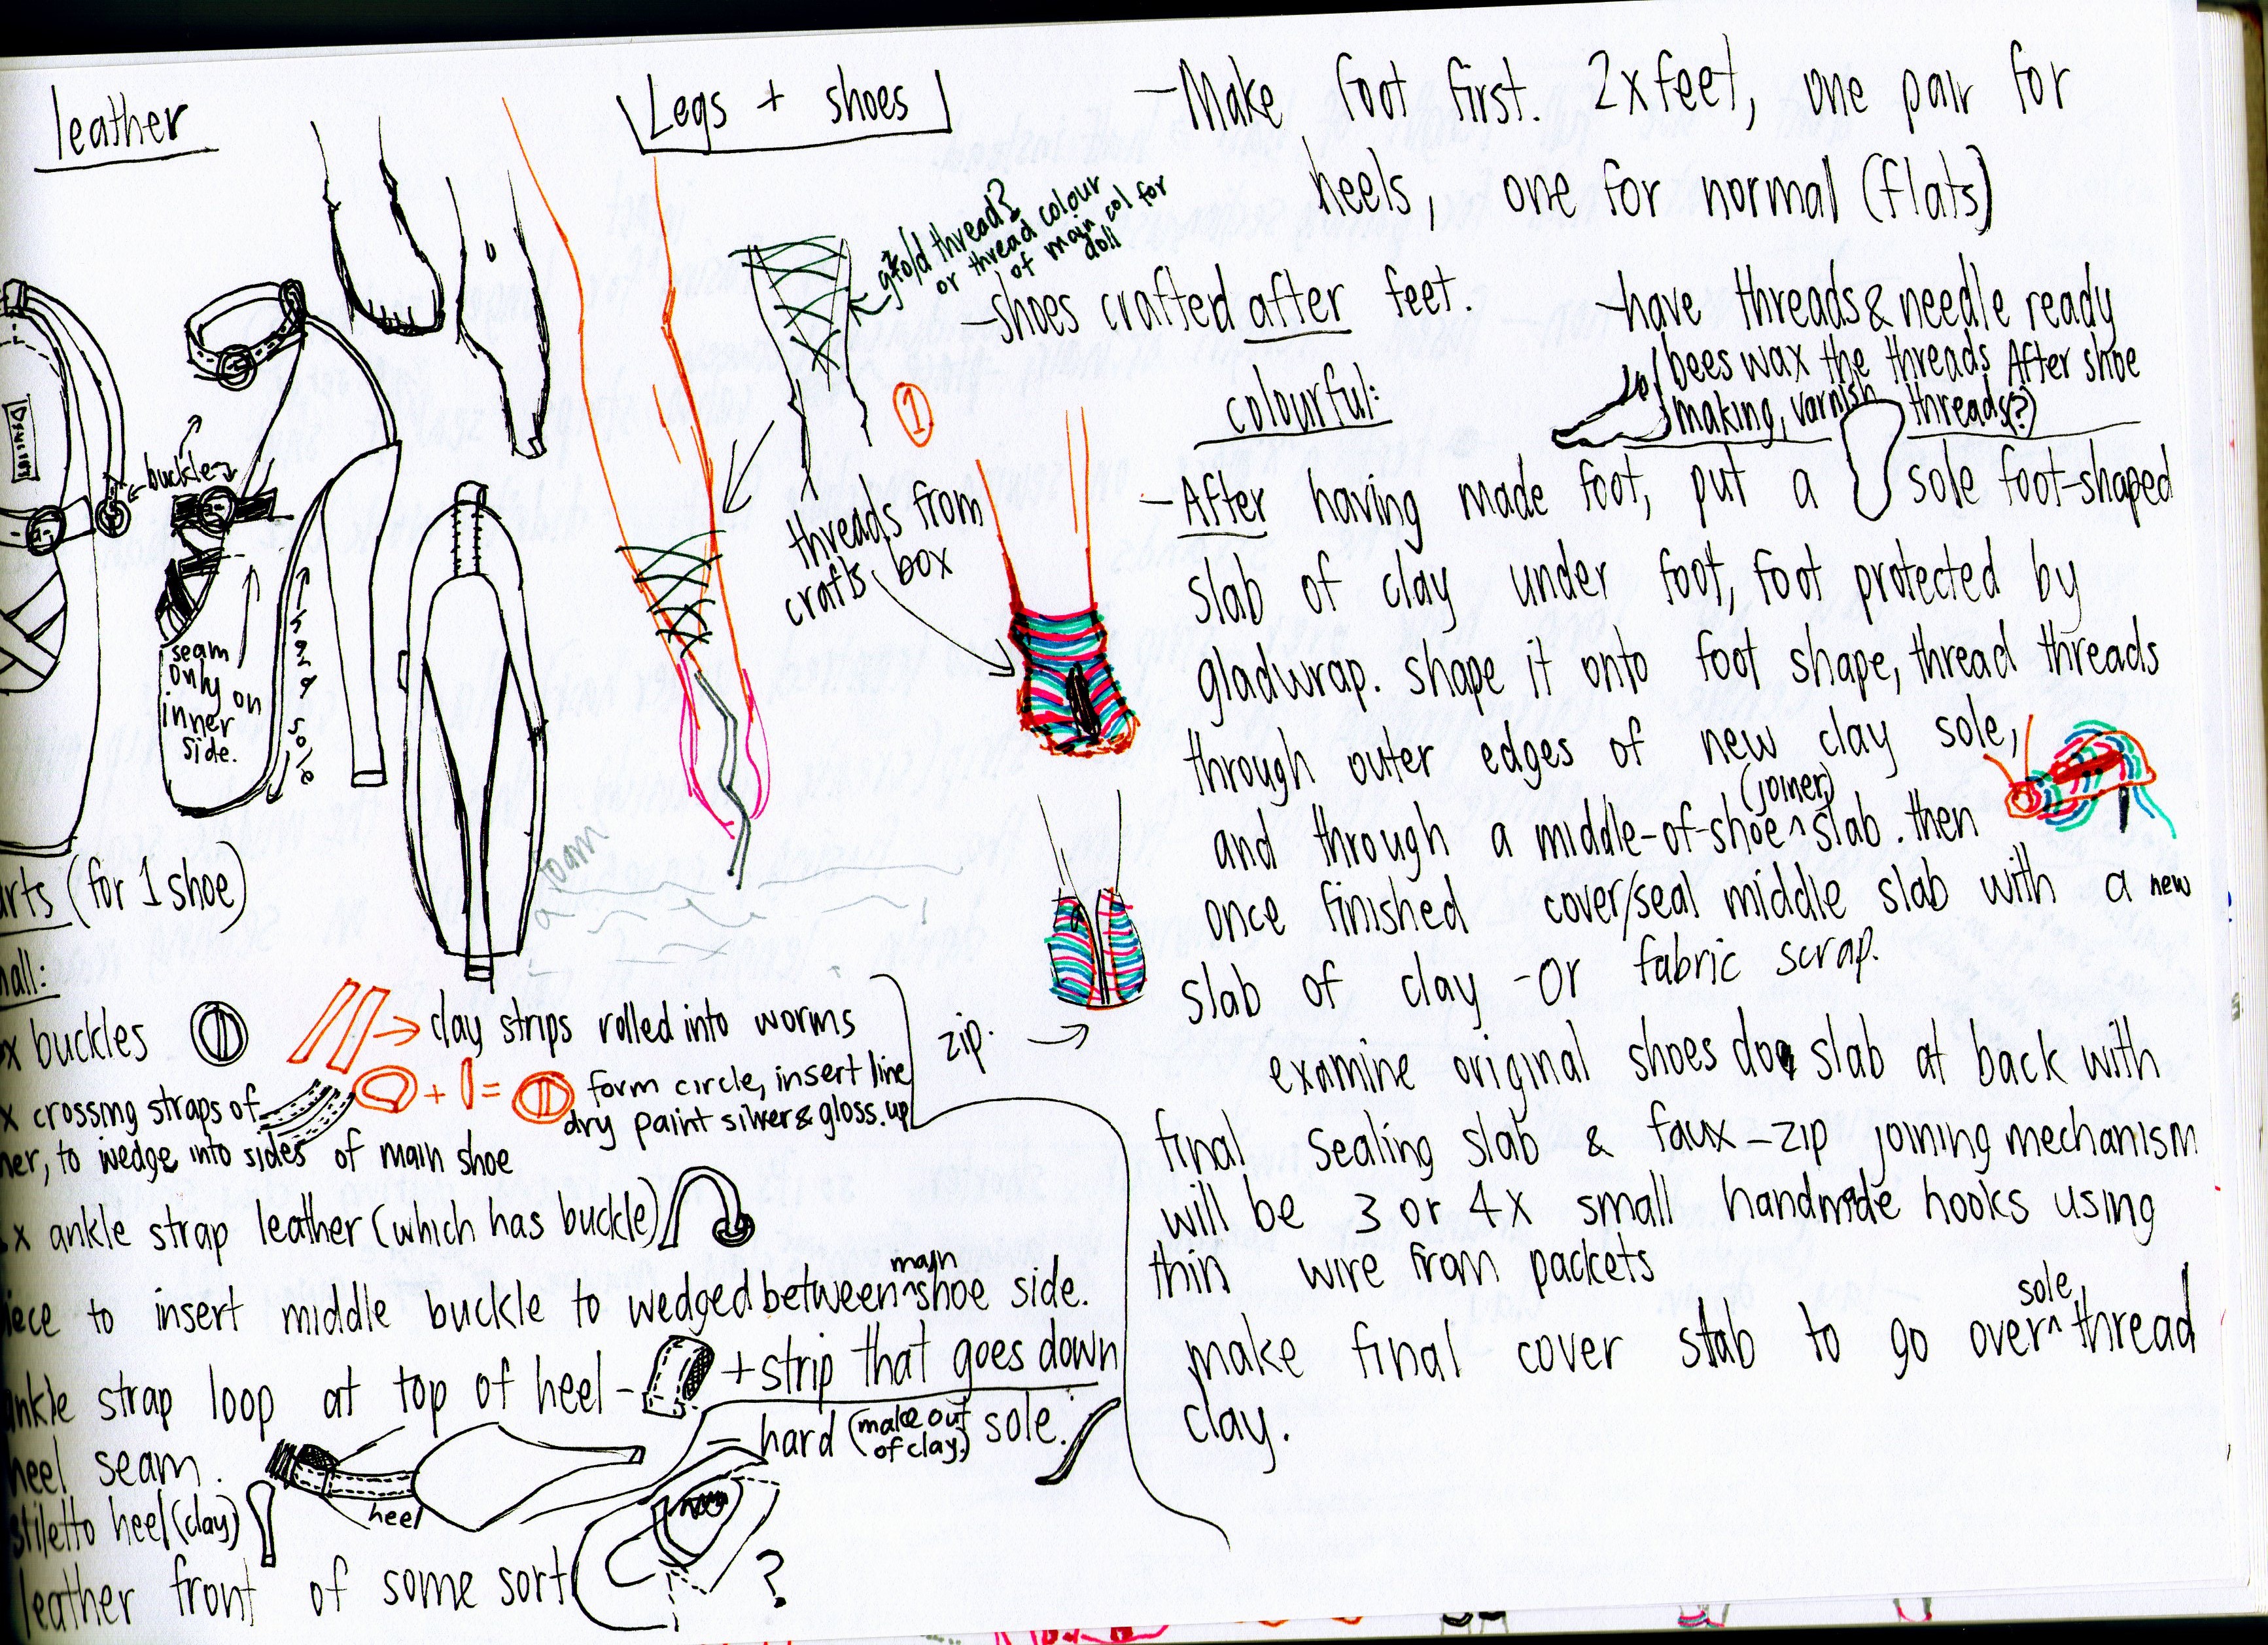 leather
Legs + shoes
- Make foot first. 2x feet, one pair for
heels, one for normal (flats)
- shoes crafted after feet.
- have threads & needle ready
bees wax the threads After shoe
making, varnish threads?)
*gold thread?
or thread colour
of main col for
doll
1
threads from
crafts box
colourful:
- After having made foot, put a sole foot-shaped
slab of clay under foot, foot protected by
gladwrap. shape it onto foot shape, thread threads
through outer edges of new clay sole,
and through a middle-of-shoe^slab. then
(joiner)
once finished cover/seal middle slab with a new
slab of clay - or fabric scrap.
examine original shoes slab at back with
final sealing slab & faux-zip joining mechanism
will be 3 or 4x small handmade hooks using
thin wire from packets
make final cover slab to go over^thread
sole
clay.
zip.
buckle
seam
only on
inner
side.
hard sole
(for 1 shoe)
buckles
clay strips rolled into worms
form circle, insert line
dry paint silver & gloss up
crossing straps of
to wedge into sides of main shoe
ankle strap leather (which has buckle)
to insert middle buckle to wedged between^shoe side.
main
strap loop at top of heel - + strip that goes down
heel seam.
hard (make out of clay.) sole.
heel
stiletto heel (clay)
leather front of some sort
?